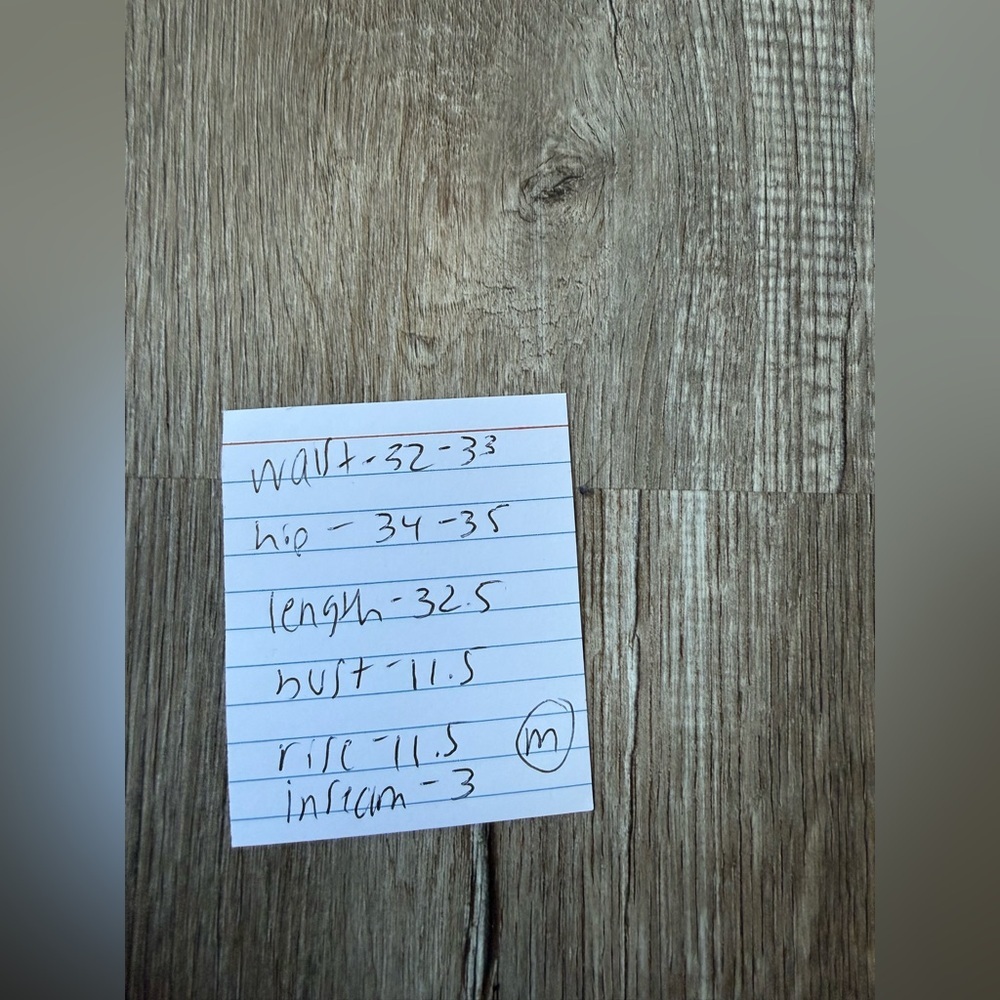 waist - 32-33
hip - 34-35
length - 32.5
bust - 11.5
rise - 11.5 m
inseam - 3